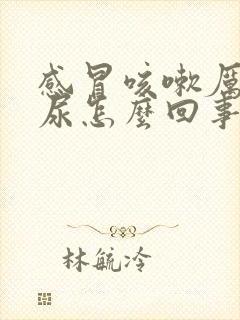 感冒咳嗽厲
尿怎麼回事
林毓冷